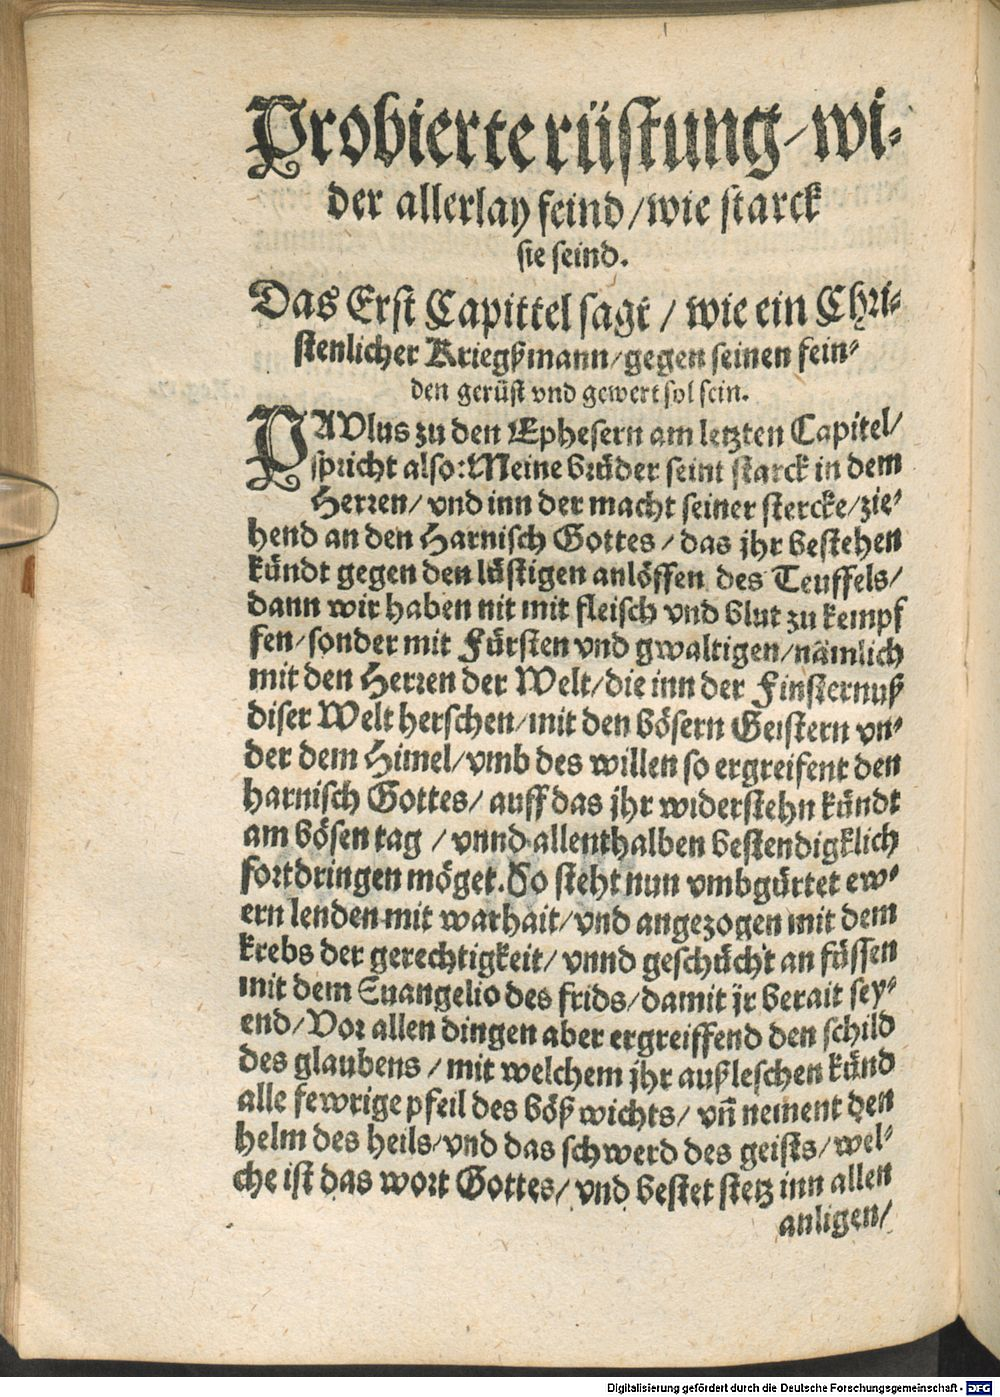 Probierte rüstung/ wi-
der allerlay feind/wie starck
sie seind.
Das Erst Capittel sagt / wie ein Chri-
stenlicher Kriegßmann/gegen seinen fein-
den gerüst vnd gewert sol sein.
PAVlus zu den Ephesern am letzten Capitel/
spricht also: Meine brüder seint starck in dem
Herren/ vnd inn der macht seiner stercke/zie-
hend an den Harnisch Gottes / das jhr bestehen
kündt gegen den lüstigen anlöffen des Teuffels/
dann wir haben nit mit fleisch vnd blut zu kempf
fen/sonder mit Fürsten vnd gwaltigen/nämlich
mit den Herren der Welt/die inn der Finsternuß
diser Welt herschen/mit den bösern Geistern vn-
der dem Himel/vmb des willen so ergreifent den
harnisch Gottes/ auff das jhr widerstehn kündt
am bösen tag / vnnd allenthalben bestendigklich
fortdringen möget. So steht nun vmbgürtet ew-
ern lenden mit warhait/vnd angezogen mit dem
krebs der gerechtigkeit/ vnnd geschücht an füssen
mit dem Euangelio des frids/damit jr berait sey-
end/Vor allen dingen aber ergreiffend den schild
des glaubens / mit welchem jhr außleschen künd
alle fewrige pfeil des böß wichts/ vñ nement den
helm des heils/vnd das schwerd des geists/wel-
che ist das wort Gottes/ vnd bettet stetz inn allen
anligen/
Digitalisierung gefördert durch die Deutsche Forschungsgemeinschaft - DFG